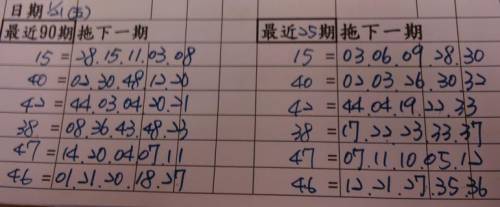 日期
最近90期 拖下一期 最近25期 拖下一期
15 = 28.15.11.03.08 15 = 03.06.09.28.30
40 = 02.30.48.12.20 40 = 02.03.26.30.32
42 = 44.03.04.20.21 42 = 44.04.19.22.33
38 = 08.36.43.48.23 38 = 17.22.23.33.37
47 = 14.20.04.07.11 47 = 07.11.10.05.12
46 = 01.21.20.18.27 46 = 12.21.27.35.36